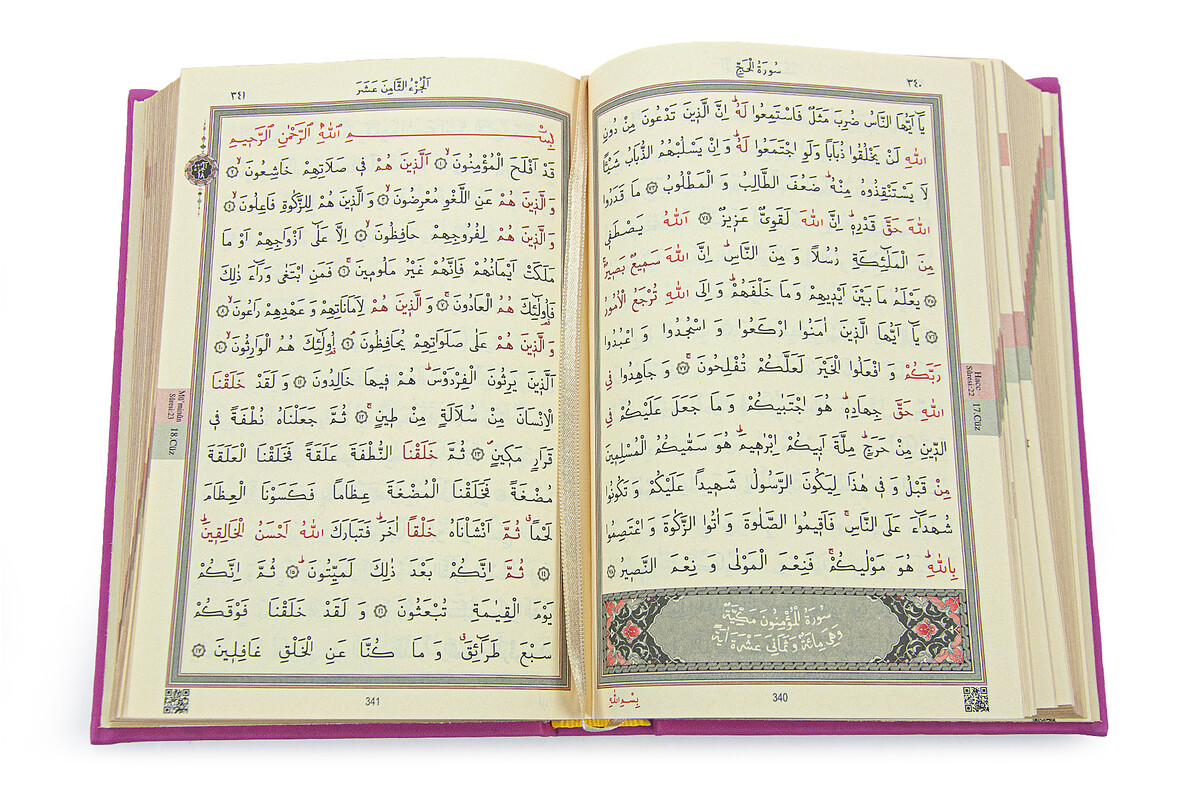 سُورَةُ الْحَجِّ
٣٤٠
يَٓا اَيُّهَا النَّاسُ ضُرِبَ مَثَلٌ فَاسْتَمِعُوا لَهُۜ اِنَّ الَّذ۪ينَ تَدْعُونَ مِنْ دُونِ
اللّٰهِ لَنْ يَخْلُقُوا ذُبَابًا وَلَوِ اجْتَمَعُوا لَهُۜ وَاِنْ يَسْلُبْهُمُ الذُّبَابُ شَيْـًٔا
لَا يَسْتَنْقِذُوهُ مِنْهُۜ ضَعُفَ الطَّالِبُ وَالْمَطْلُوبُ ﴿٧٣﴾ مَا قَدَرُوا
اللّٰهَ حَقَّ قَدْرِه۪ۜ اِنَّ اللّٰهَ لَقَوِيٌّ عَز۪يزٌ ﴿٧٤﴾ اَللّٰهُ يَصْطَف۪ي
مِنَ الْمَلٰٓئِكَةِ رُسُلًا وَمِنَ النَّاسِۜ اِنَّ اللّٰهَ سَم۪يعٌ بَص۪يرٌۚ
﴿٧٥﴾ يَعْلَمُ مَا بَيْنَ اَيْد۪يهِمْ وَمَا خَلْفَهُمْۜ وَاِلَى اللّٰهِ تُرْجَعُ الْاُمُورُ
﴿٧٦﴾ يَٓا اَيُّهَا الَّذ۪ينَ اٰمَنُوا ارْكَعُوا وَاسْجُدُوا وَاعْبُدُوا
رَبَّكُمْ وَافْعَلُوا الْخَيْرَ لَعَلَّكُمْ تُفْلِحُونَۚ ﴿٧٧﴾ وَجَاهِدُوا فِي
اللّٰهِ حَقَّ جِهَادِه۪ۜ هُوَ اجْتَبٰيكُمْ وَمَا جَعَلَ عَلَيْكُمْ فِي
الدّ۪ينِ مِنْ حَرَجٍۜ مِلَّةَ اَب۪يكُمْ اِبْرٰه۪يمَۜ هُوَ سَمّٰيكُمُ الْمُسْلِم۪ينَ
مِنْ قَبْلُ وَف۪ي هٰذَا لِيَكُونَ الرَّسُولُ شَه۪يدًا عَلَيْكُمْ وَتَكُونُوا
شُهَدَٓاءَ عَلَى النَّاسِۚ فَاَق۪يمُوا الصَّلٰوةَ وَاٰتُوا الزَّكٰوةَ وَاعْتَصِمُوا
بِاللّٰهِۜ هُوَ مَوْلٰيكُمْۚ فَنِعْمَ الْمَوْلٰى وَنِعْمَ النَّص۪يرُ ﴿٧٨﴾
سُورَةُ الْمُؤْمِنُونَ مَكِّيَّةٌ
وَهِيَ مِائَةٌ وَثَمَانِيَ عَشْرَةَ اٰيَةً
بِسْمِ اللّٰهِ
340
Hacc
Sûresi:22
17.Cüz
اَلْجُزْءُ الثَّامِنَ عَشَرَ
٣٤١
بِسْمِ اللّٰهِ الرَّحْمٰنِ الرَّح۪يمِ
قَدْ اَفْلَحَ الْمُؤْمِنُونَۙ ﴿١﴾ اَلَّذ۪ينَ هُمْ ف۪ي صَلَاتِهِمْ خَاشِعُونَۙ ﴿٢﴾
وَالَّذ۪ينَ هُمْ عَنِ اللَّغْوِ مُعْرِضُونَۙ ﴿٣﴾ وَالَّذ۪ينَ هُمْ لِلزَّكٰوةِ فَاعِلُونَۙ ﴿٤﴾
وَالَّذ۪ينَ هُمْ لِفُرُوجِهِمْ حَافِظُونَۙ ﴿٥﴾ اِلَّا عَلٰٓى اَزْوَاجِهِمْ اَوْ مَا
مَلَكَتْ اَيْمَانُهُمْ فَاِنَّهُمْ غَيْرُ مَلُوم۪ينَۚ ﴿٦﴾ فَمَنِ ابْتَغٰى وَرَٓاءَ ذٰلِكَ
فَاُو۬لٰٓئِكَ هُمُ الْعَادُونَۚ ﴿٧﴾ وَالَّذ۪ينَ هُمْ لِاَمَانَاتِهِمْ وَعَهْدِهِمْ رَاعُونَۙ ﴿٨﴾
وَالَّذ۪ينَ هُمْ عَلٰى صَلَوَاتِهِمْ يُحَافِظُونَۢ ﴿٩﴾ اُو۬لٰٓئِكَ هُمُ الْوَارِثُونَۙ ﴿١٠﴾
اَلَّذ۪ينَ يَرِثُونَ الْفِرْدَوْسَۜ هُمْ ف۪يهَا خَالِدُونَ ﴿١١﴾ وَلَقَدْ خَلَقْنَا
الْاِنْسَانَ مِنْ سُلَالَةٍ مِنْ ط۪ينٍۚ ﴿١٢﴾ ثُمَّ جَعَلْنَاهُ نُطْفَةً ف۪ي
قَرَارٍ مَك۪ينٍۖ ﴿١٣﴾ ثُمَّ خَلَقْنَا النُّطْفَةَ عَلَقَةً فَخَلَقْنَا الْعَلَقَةَ
مُضْغَةً فَخَلَقْنَا الْمُضْغَةَ عِظَامًا فَكَسَوْنَا الْعِظَامَ
لَحْمًاۗ ثُمَّ اَنْشَأْنَاهُ خَلْقًا اٰخَرَۜ فَتَبَارَكَ اللّٰهُ اَحْسَنُ الْخَالِق۪ينَۜ
﴿١٤﴾ ثُمَّ اِنَّكُمْ بَعْدَ ذٰلِكَ لَمَيِّتُونَۜ ﴿١٥﴾ ثُمَّ اِنَّكُمْ
يَوْمَ الْقِيٰمَةِ تُبْعَثُونَ ﴿١٦﴾ وَلَقَدْ خَلَقْنَا فَوْقَكُمْ
سَبْعَ طَرَٓائِقَۗ وَمَا كُنَّا عَنِ الْخَلْقِ غَافِل۪ينَ ﴿١٧﴾
341
Mü'minûn
Sûresi:23
18.Cüz